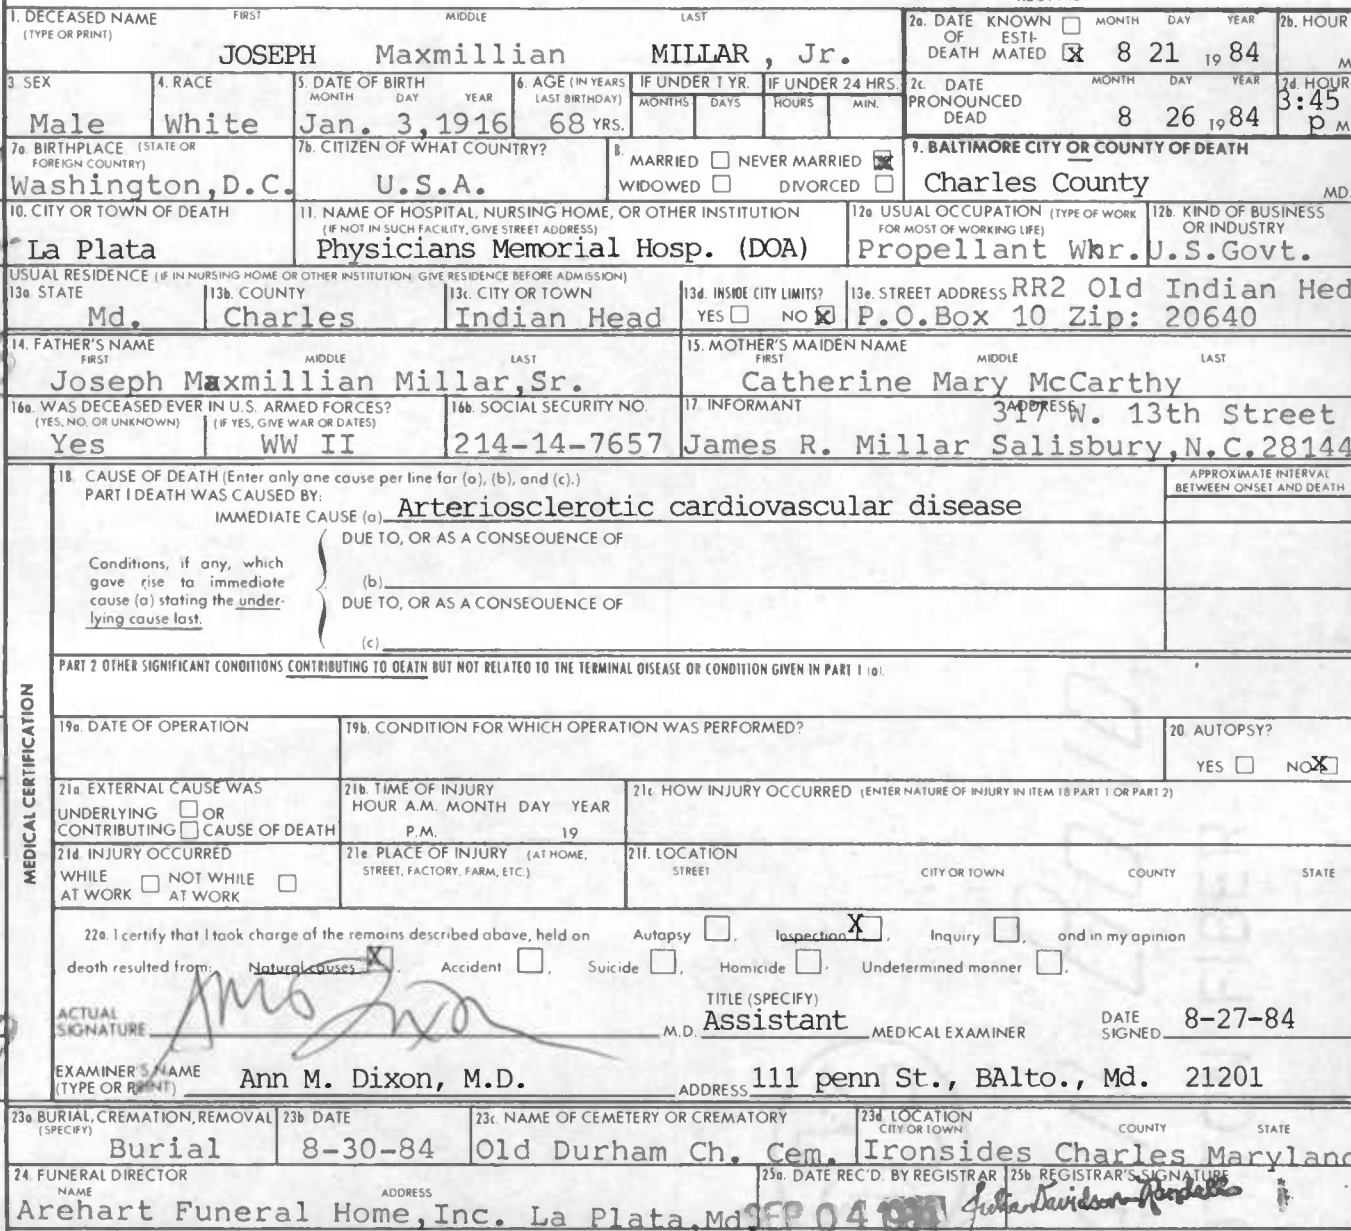 1. DECEASED NAME FIRST MIDDLE LAST
(TYPE OR PRINT)
JOSEPH Maxmillian MILLAR , Jr.
2a. DATE KNOWN ☐ MONTH DAY YEAR
OF ESTI-
DEATH MATED ☒ 8 21 19 84
2b. HOUR
M
3 SEX
Male
4. RACE
White
5. DATE OF BIRTH
MONTH DAY YEAR
Jan. 3,1916
6. AGE (IN YEARS
LAST BIRTHDAY)
68 YRS.
IF UNDER 1 YR.
MONTHS DAYS
IF UNDER 24 HRS.
HOURS MIN.
2c. DATE MONTH DAY YEAR
PRONOUNCED
DEAD 8 26 19 84
2d. HOUR
3:45
p M
7a. BIRTHPLACE (STATE OR
FOREIGN COUNTRY)
Washington,D.C.
7b. CITIZEN OF WHAT COUNTRY?
U.S.A.
8.
MARRIED ☐ NEVER MARRIED ☒
WIDOWED ☐ DIVORCED ☐
9. BALTIMORE CITY OR COUNTY OF DEATH
Charles County MD.
10. CITY OR TOWN OF DEATH
La Plata
11. NAME OF HOSPITAL, NURSING HOME, OR OTHER INSTITUTION
(IF NOT IN SUCH FACILITY, GIVE STREET ADDRESS)
Physicians Memorial Hosp. (DOA)
12a USUAL OCCUPATION (TYPE OF WORK
FOR MOST OF WORKING LIFE)
Propellant Wkr.
12b. KIND OF BUSINESS
OR INDUSTRY
U.S.Govt.
USUAL RESIDENCE (IF IN NURSING HOME OR OTHER INSTITUTION GIVE RESIDENCE BEFORE ADMISSION)
13a STATE
Md.
13b. COUNTY
Charles
13c. CITY OR TOWN
Indian Head
13d. INSIDE CITY LIMITS?
YES ☐ NO ☒
13e. STREET ADDRESS RR2 Old Indian Hed
P.O.Box 10 Zip: 20640
14. FATHER'S NAME
FIRST MIDDLE LAST
Joseph Maxmillian Millar,Sr.
15. MOTHER'S MAIDEN NAME
FIRST MIDDLE LAST
Catherine Mary McCarthy
16a. WAS DECEASED EVER IN U.S. ARMED FORCES?
(YES, NO, OR UNKNOWN) (IF YES, GIVE WAR OR DATES)
Yes WW II
16b. SOCIAL SECURITY NO.
214-14-7657
17 INFORMANT ADDRESS
317 W. 13th Street
James R. Millar Salisbury,N.C.28144
MEDICAL CERTIFICATION
18 CAUSE OF DEATH (Enter only one cause per line for (a), (b), and (c).)
PART I DEATH WAS CAUSED BY:
APPROXIMATE INTERVAL
BETWEEN ONSET AND DEATH
IMMEDIATE CAUSE (a) Arteriosclerotic cardiovascular disease
DUE TO, OR AS A CONSEQUENCE OF
Conditions, if any, which
gave rise to immediate
cause (a) stating the under-
lying cause last.
(b)
DUE TO, OR AS A CONSEQUENCE OF
(c)
PART 2 OTHER SIGNIFICANT CONDITIONS CONTRIBUTING TO DEATH BUT NOT RELATED TO THE TERMINAL DISEASE OR CONDITION GIVEN IN PART 1 (a).
19a. DATE OF OPERATION
19b. CONDITION FOR WHICH OPERATION WAS PERFORMED?
20 AUTOPSY?
YES ☐ NO ☒
21a EXTERNAL CAUSE WAS
UNDERLYING ☐ OR
CONTRIBUTING ☐ CAUSE OF DEATH
21b. TIME OF INJURY
HOUR A.M. MONTH DAY YEAR
P.M. 19
21c HOW INJURY OCCURRED (ENTER NATURE OF INJURY IN ITEM 18 PART 1 OR PART 2)
21d INJURY OCCURRED
WHILE ☐ NOT WHILE ☐
AT WORK AT WORK
21e PLACE OF INJURY (AT HOME,
STREET, FACTORY, FARM, ETC.)
21f. LOCATION
STREET CITY OR TOWN COUNTY STATE
22a. I certify that I took charge of the remains described above, held on Autopsy ☐, Inspection ☒, Inquiry ☐, and in my opinion
death resulted from: Natural causes ☒, Accident ☐, Suicide ☐, Homicide ☐, Undetermined manner ☐.
ACTUAL
SIGNATURE M.D.
TITLE (SPECIFY)
Assistant MEDICAL EXAMINER
DATE
SIGNED 8-27-84
EXAMINER'S NAME
(TYPE OR PRINT) Ann M. Dixon, M.D. ADDRESS 111 penn St., BAlto., Md. 21201
23a BURIAL, CREMATION, REMOVAL
(SPECIFY)
Burial
23b DATE
8-30-84
23c. NAME OF CEMETERY OR CREMATORY
Old Durham Ch. Cem.
23d LOCATION
CITY OR TOWN COUNTY STATE
Ironsides Charles Maryland
24 FUNERAL DIRECTOR
NAME ADDRESS
Arehart Funeral Home,Inc. La Plata,Md
25a. DATE REC'D. BY REGISTRAR
SEP 04
25b REGISTRAR'S SIGNATURE
Julia Davidson-Randall